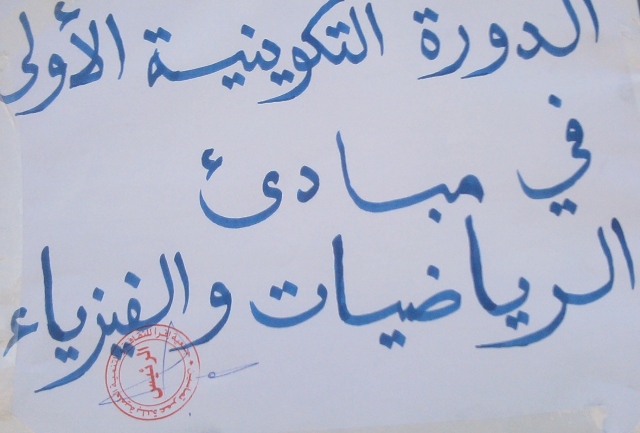 الدورة التكوينية الأولى
في مبادئ
الرياضيات والفيزياء
الرئيس